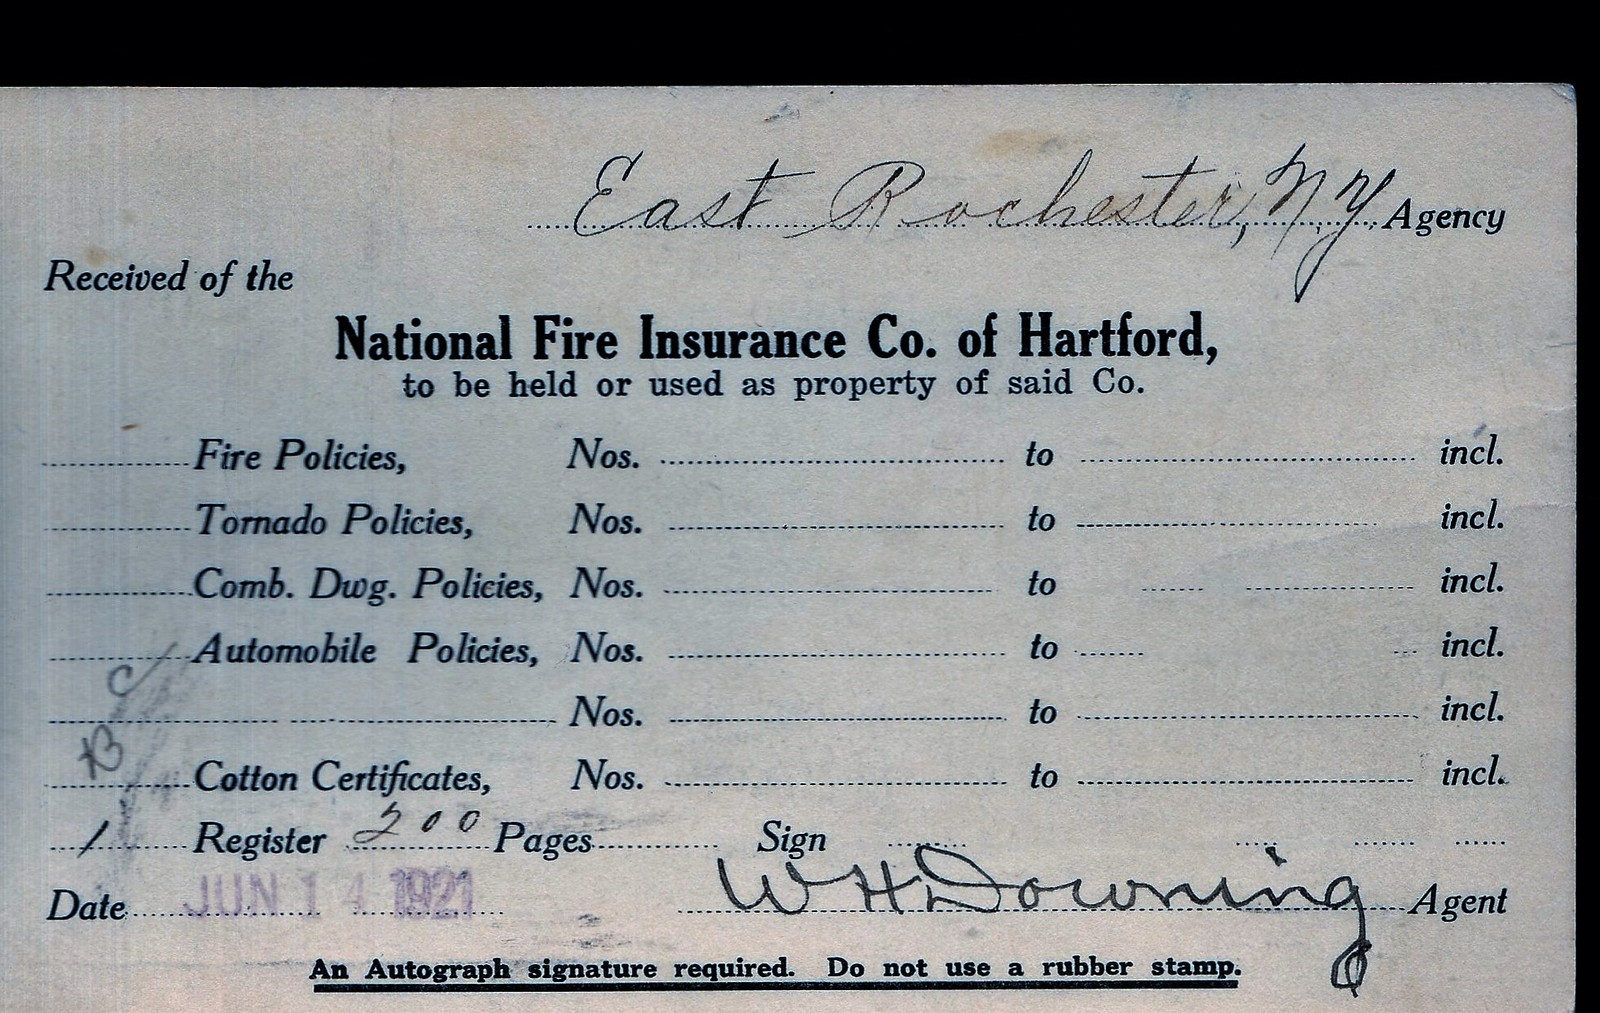 East Rochester, N.Y. Agency
Received of the
National Fire Insurance Co. of Hartford,
to be held or used as property of said Co.
Fire Policies, Nos. to incl.
Tornado Policies, Nos. to incl.
Comb. Dwg. Policies, Nos. to incl.
Automobile Policies, Nos. to incl.
Nos. to incl.
Cotton Certificates, Nos. to incl.
1 Register 200 Pages Sign
Date JUN 14 1921 W H Downing Agent
An Autograph signature required. Do not use a rubber stamp.